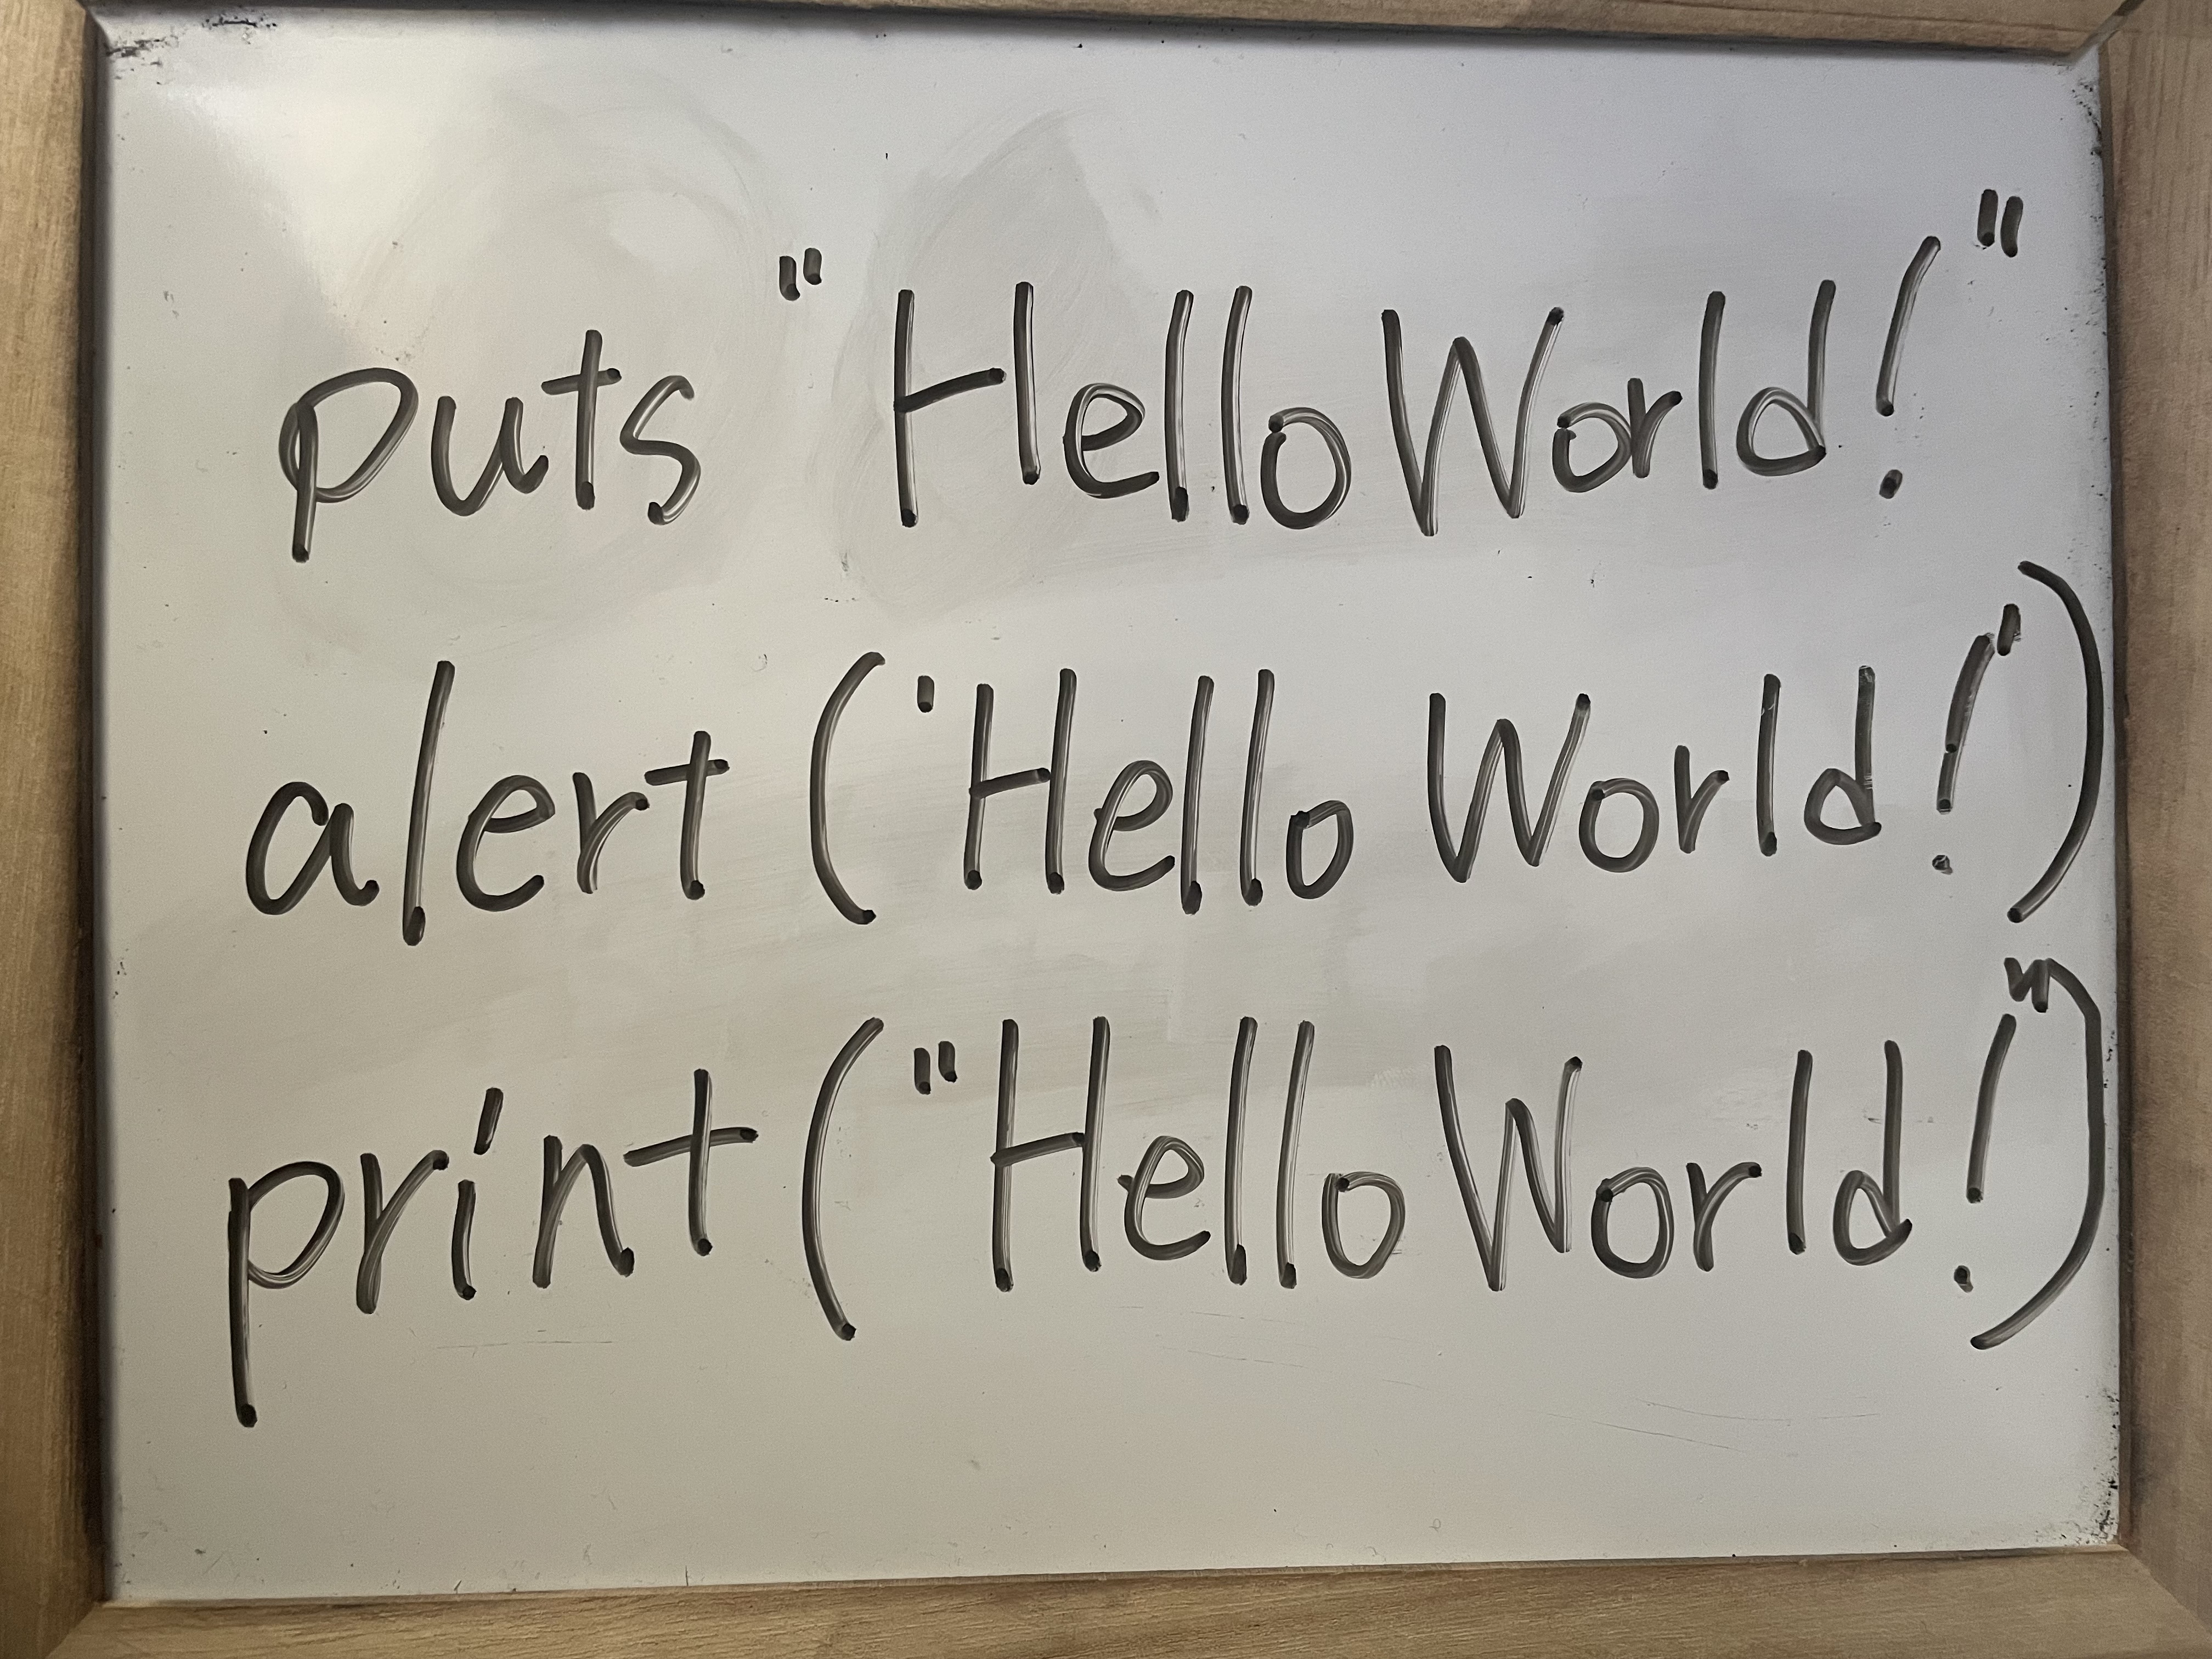 puts "Hello World!"
alert('Hello World!')
print("Hello World!")